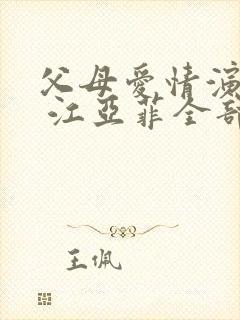 父母愛情演
江亞菲全部
王佩